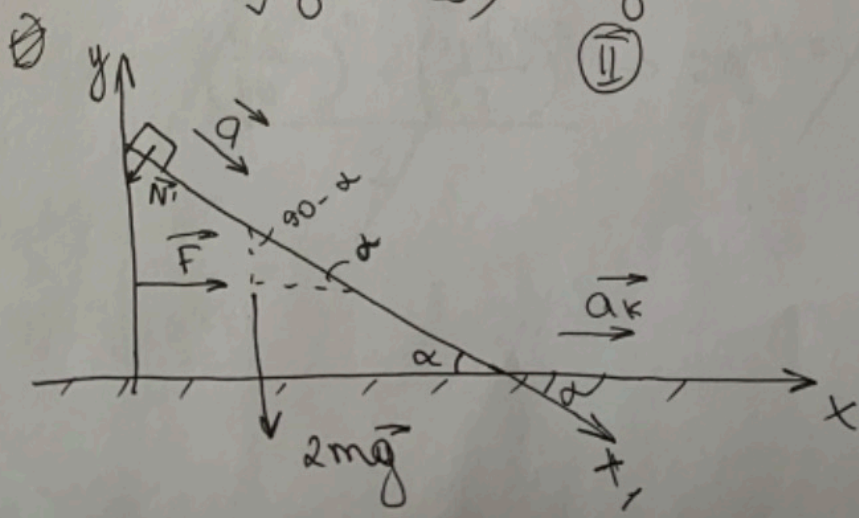 II
y
a
N₁
90-α
α
F
a_k
α
α
x
2mg
x₁